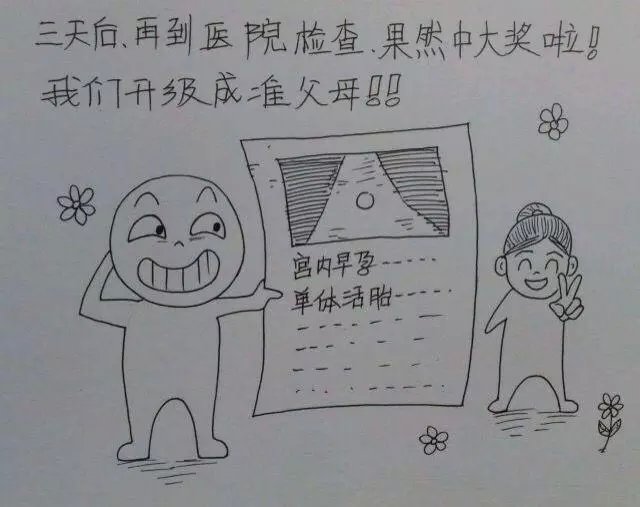 三天后、再到医院检查、果然中大奖啦!
我们升级成准父母!!!
宫内早孕-----
单体活胎-----